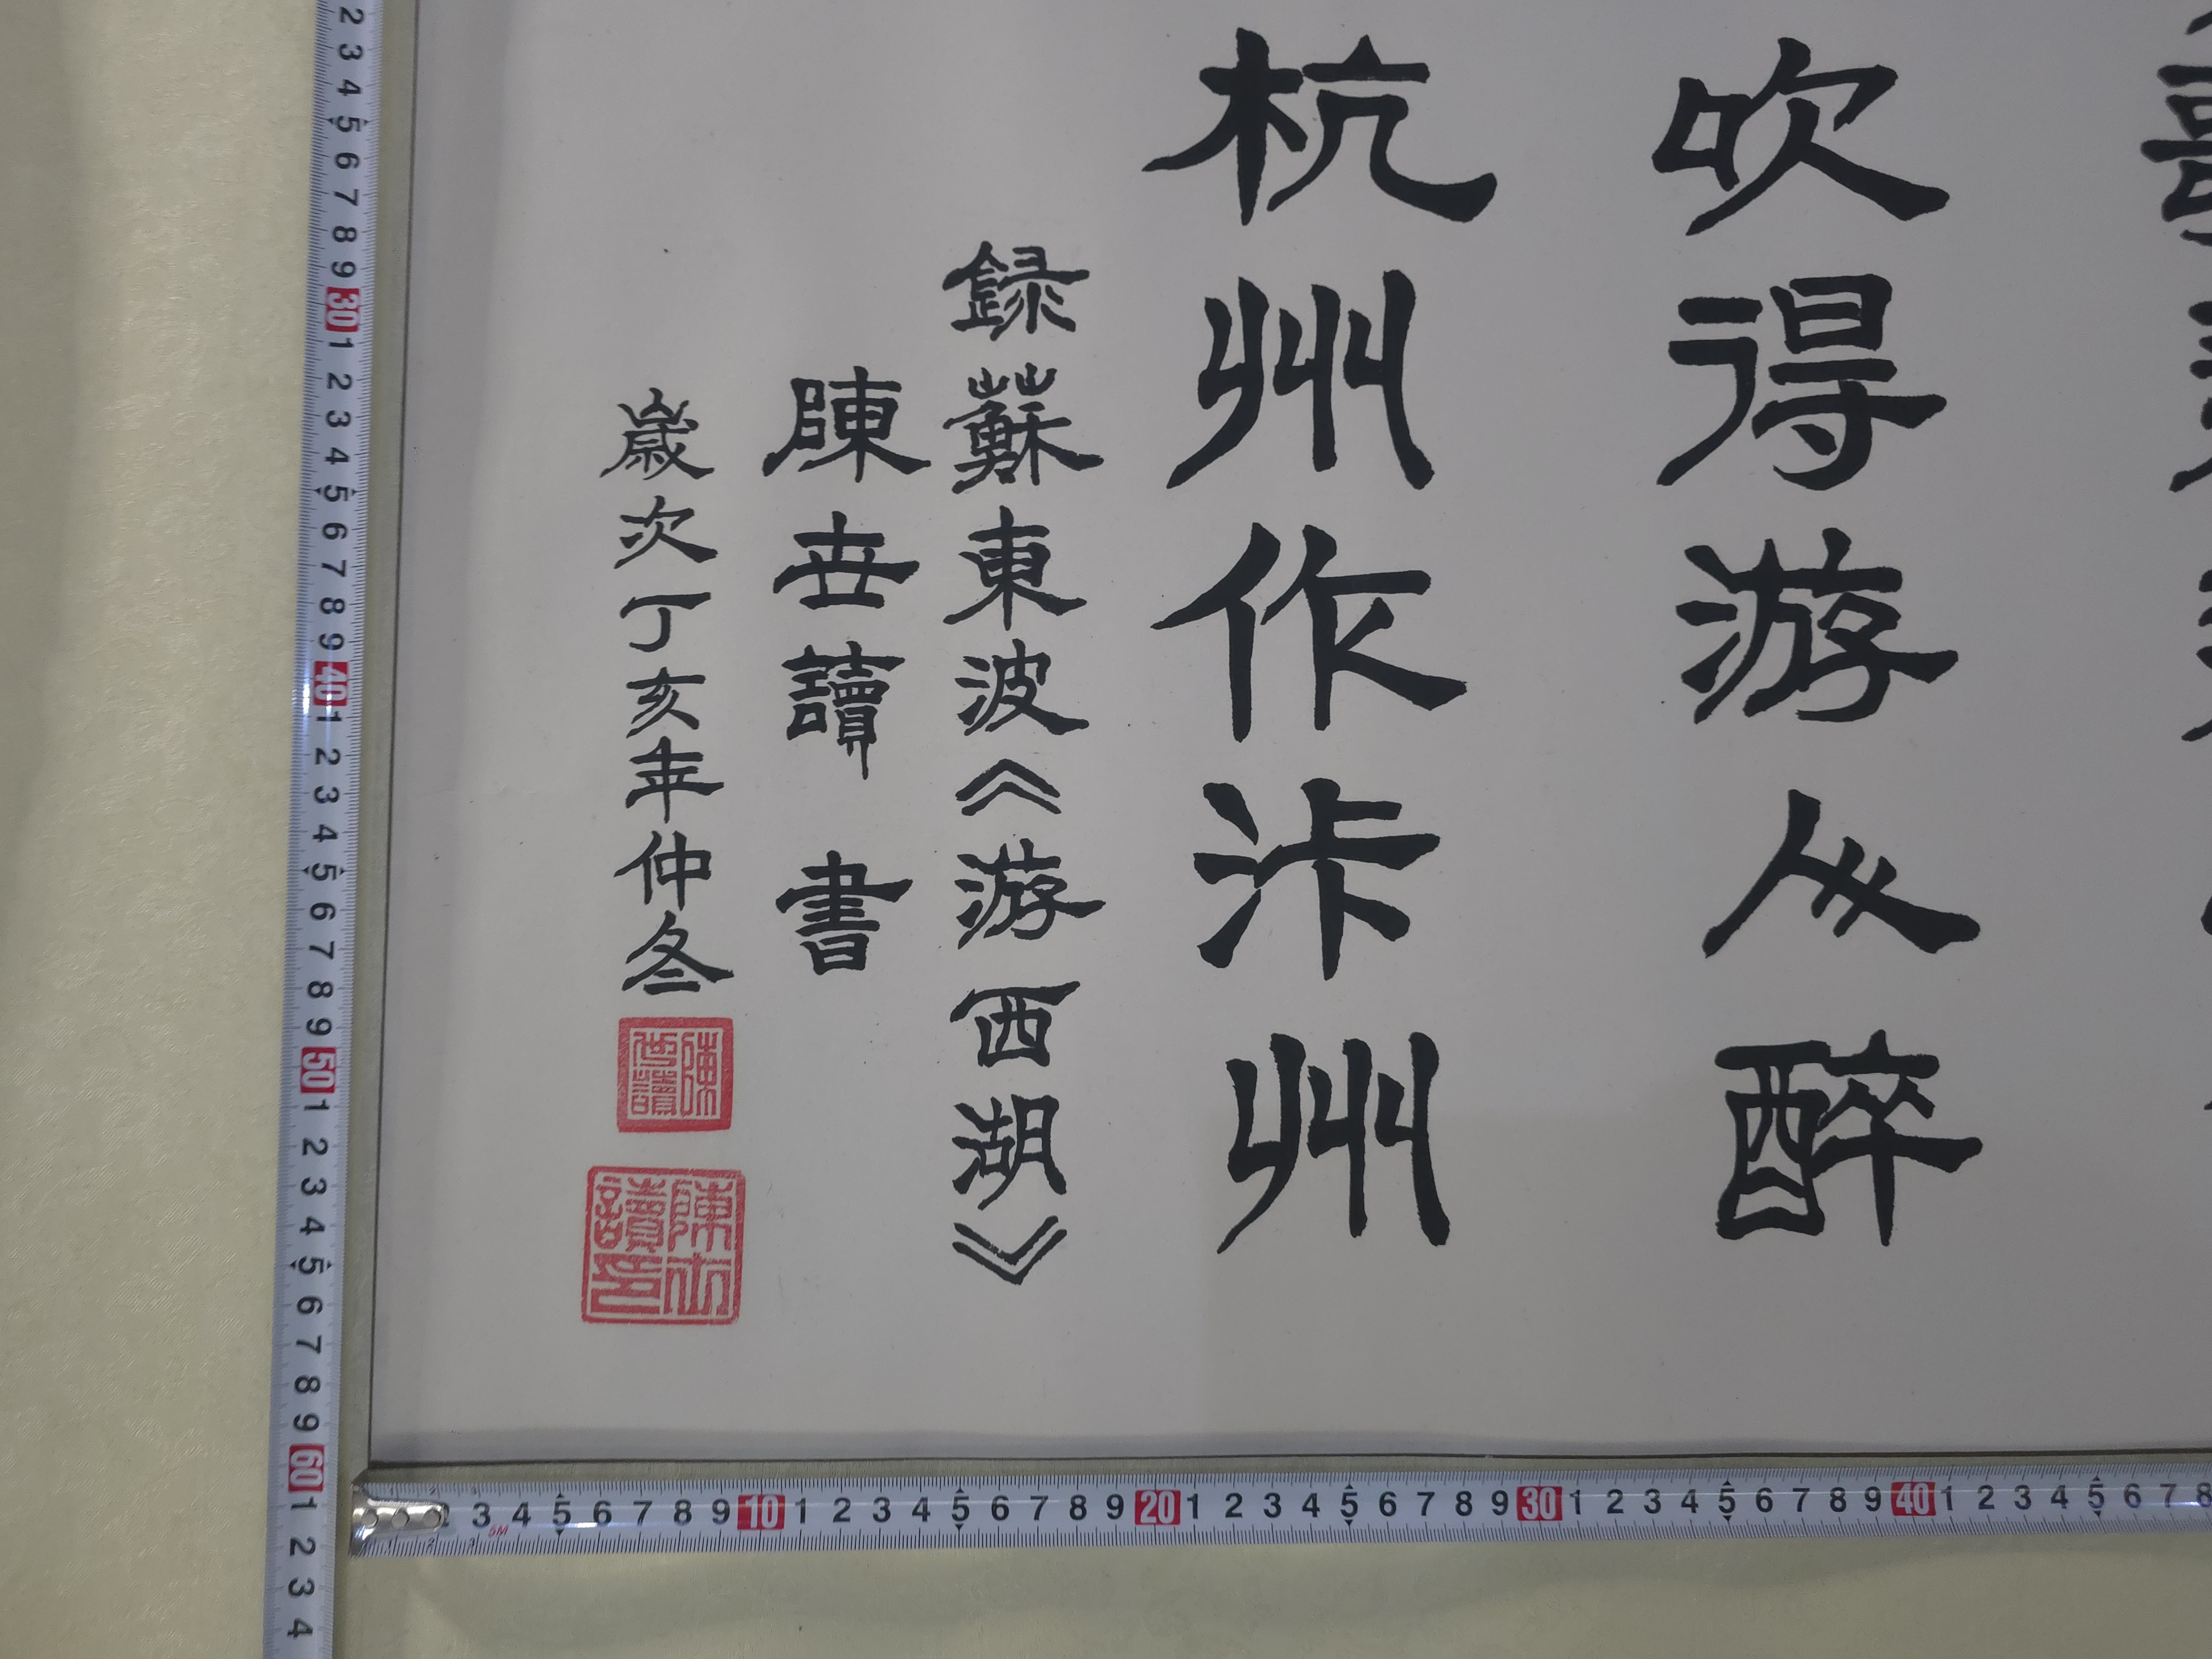 吹得游人醉
杭州作汴州
録蘇東波《游西湖》
陳世讀 書
歲次丁亥年仲冬
陳世讀
陳世讀印
2 3 4 5 6 7 8 9 30 1 2 3 4 5 6 7 8 9 40 1 2 3 4 5 6 7 8 9 50 1 2 3 4 5 6 7 8 9 60 1 2 3 4
2 3 4 5 6 7 8 9 10 1 2 3 4 5 6 7 8 9 20 1 2 3 4 5 6 7 8 9 30 1 2 3 4 5 6 7 8 9 40 1 2 3 4 5 6 7 8
5M